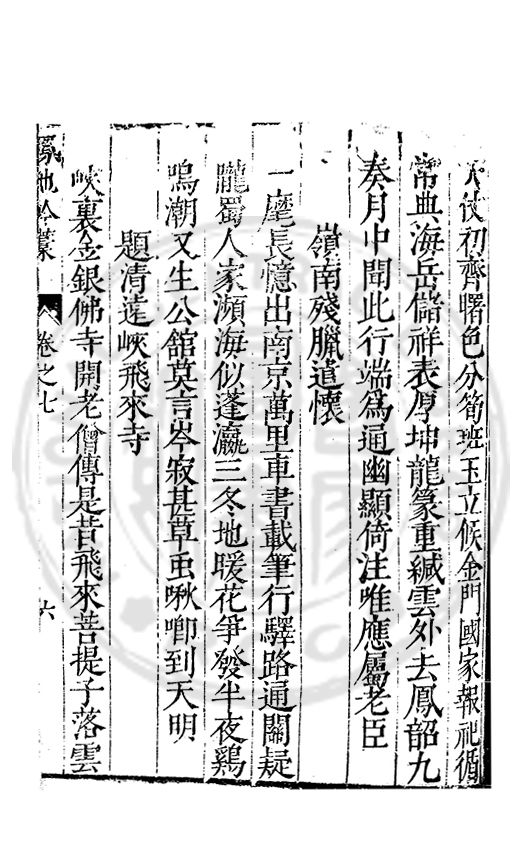 天仗初齊曙色分笥班玉立候金門國家報祀循
常典海岳儲祥表厚坤龍篆重緘雲外去鳳韶九
奏月中聞此行端為通幽顯倚注唯應屬老臣
嶺南殘臘道懷
一麾長憶出南京萬里車書載筆行驛路通關疑
隴蜀人家瀕海似蓬瀛三冬地暖花爭發半夜鷄
鳴潮又生公館莫言岑寂甚草虫啾唧到天明
題清遠峽飛來寺
峽裏金銀佛寺開老僧傳是昔飛來菩提子落雲
鳳池吟藁 卷之七 六